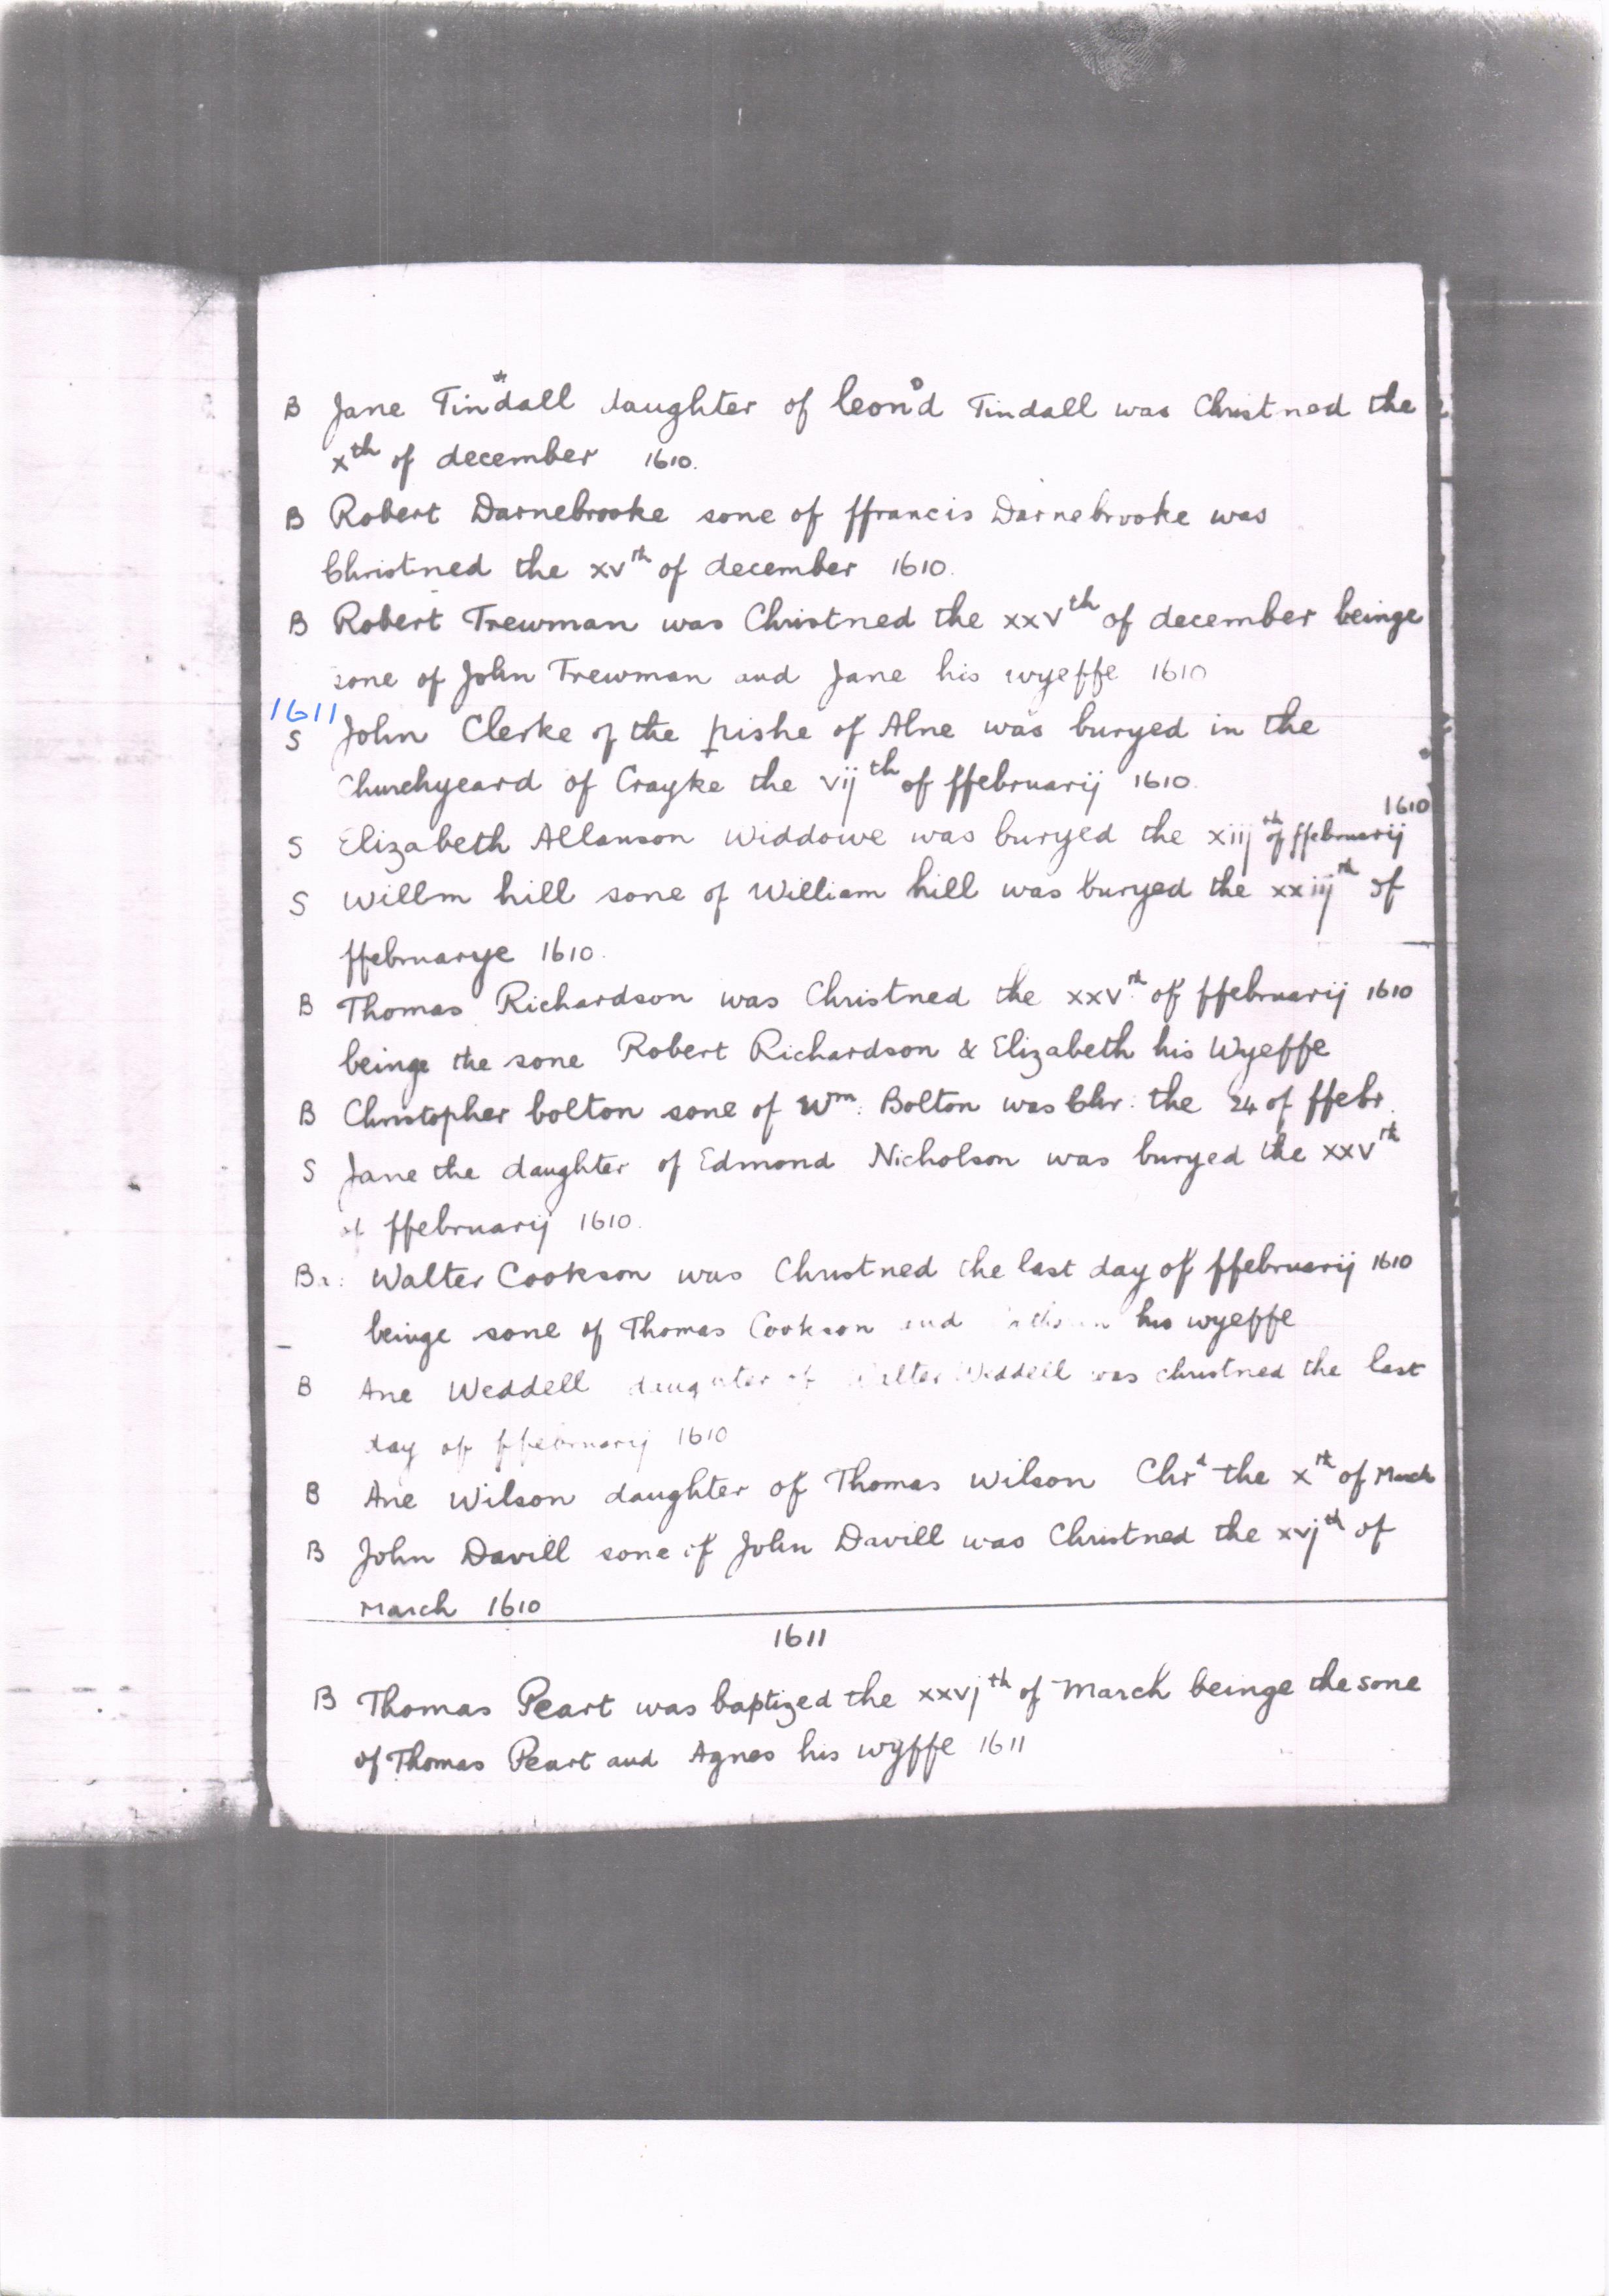 B Jane Tindall daughter of leon'd Tindall was Christned the
xth of december 1610.
B Robert Darnebrooke sone of ffrancis Darnebrooke was
Christned the xvth of december 1610.
B Robert Trewman was Christned the xxvth of december beinge
sone of John Trewman and Jane his wyeffe 1610
1611
S John Clerke of the pishe of Alne was buryed in the
Churchyeard of Crayke the vijth of ffebruarij 1610.
1610
S Elizabeth Allanson Widdowe was buryed the xiijth of ffebruarij
S Willm hill sone of William hill was buryed the xxiijth of
ffebruarye 1610.
B Thomas Richardson was Christned the xxvth of ffebruarij 1610
beinge the sone Robert Richardson & Elizabeth his Wyeffe
B Christopher bolton sone of Wm: Bolton was Chr: the 24 of ffebr.
S Jane the daughter of Edmond Nicholson was buryed the xxvth
of ffebruarij 1610.
Ba: Walter Cookson was Christned the last day of ffebruarij 1610
beinge sone of Thomas Cookson and his wyeffe
B Ane Weddell daughter of Walter Weddell was christned the last
day of ffebruarij 1610
B Ane Wilson daughter of Thomas Wilson Chrd the xth of March
B John Davill sone of John Davill was Christned the xvjth of
March 1610
1611
B Thomas Peart was baptized the xxvjth of March beinge the sone
of Thomas Peart and Agnes his wyffe 1611